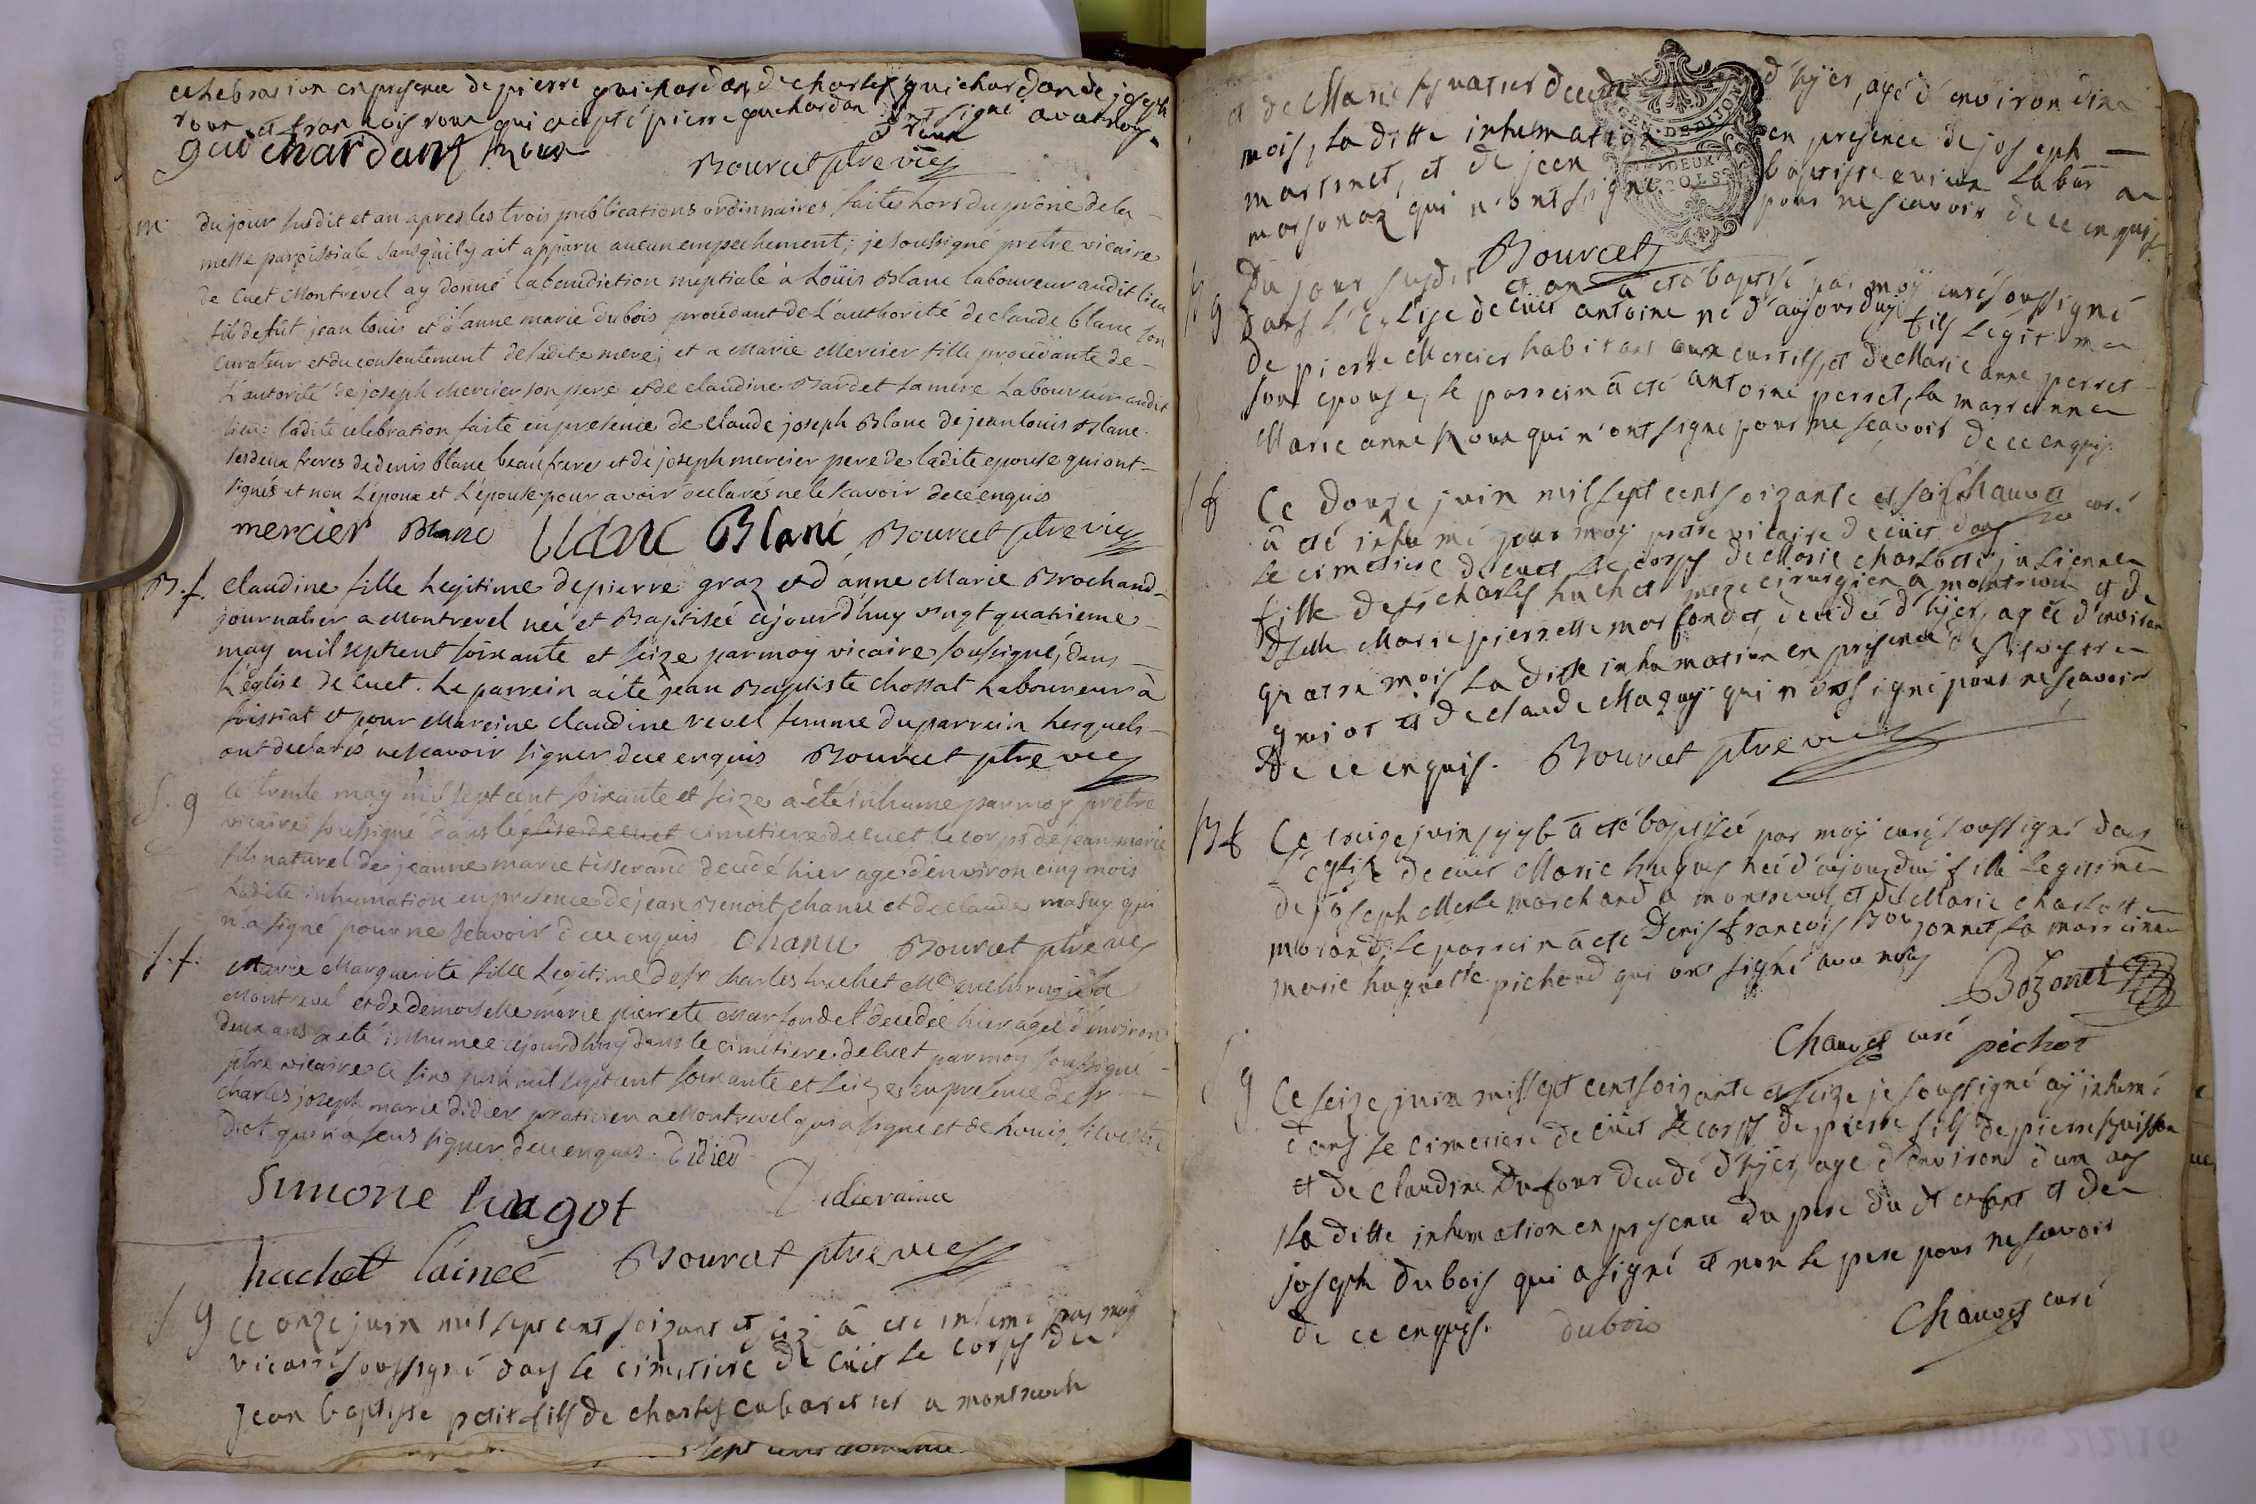 celebration en presence de pierre guichardan de charles guichardan de joseph
roux et francois roux qui excepté pierre guichardan ont signé avec moy
guichardant Roux Roux
Bourcet ptre vic
m. du jour susdit et an apres les trois publications ordinnaires faites hors du prône de la
messe paroissiale sans qu'il y ait apparu aucun empechement, je soussigné pretre vicaire
de Cuet Montrevel ay donné la benediction nuptiale à Loüis Blanc laboureur audit lieu
fils de fût jean louis et d'anne marie dubois procedant de L'authorité de claude blanc son
curateur et du consentement de sadite mere; et a Marie Mercier fille procedante de
L'autorité de joseph Mercier son pere et de claudine Bardet sa mere Laboureur audit
lieu: ladite celebration faite en presence de Claude joseph Blanc de jean louis Blanc
ses deux freres de denis blanc beaufrere et de joseph mercier pere de ladite epouse qui ont
signés et non L'époux et L'épouse pour avoir declarés ne le scavoir de ce enquis
mercier Blanc blanc Blanc Bourcet ptre vic
B. f. Claudine fille Legitime de pierre graz et d'anne Marie Brochand
journalier a Montrevel née et Baptisée cejourd'huy vingt quatrieme
may mil sept cent soixante et seize par moy vicaire soussigné, dans
L'église de Cuet. Le parrein a été jean Baptiste Chossat Laboureur à
foissiat et pour Mareine Claudine revel femme du parrein Lesquels
ont declarés ne scavoir signer de ce enquis Bourcet ptre vic
S. g Ce trente may mil sept cent soixante et seize a été inhumé par moy pretre
vicaire soussigné dans léglise de cuet cimetiere de cuet le corps de jean marie
fils naturel de jeanne marie tisserand decedé hier agé d'environ cinq mois
Ladite inhumation en presence de jean Benoit chanu et de claude mazuy qui
n'a signé pour ne scavoir de ce enquis chanu Bourcet ptre vic
S. f. Marie Marguerite fille Legitime de sr charles huchet Me en chirurgie a
Montrevel et de demoiselle marie pierrette Marfondet decedée hier agée d'environ
deux ans a eté inhumée cejourd'huy dans le cimetiere de Cuet par moy soussigné
ptre vicaire ce six juin mil sept cent soixante et seize en presence de sr
charles joseph marie didier praticien a Montrevel qui a signé et de Louis silvestre
qui n'a sceus signer de ce enquis. Didier
Simone hugot Didier ainée
huchet lainée Bourcet ptre vic
S g Ce onze juin mil sept cent soizant et seiz à eté inhumé par moy
vicaire soussigné dans le cimetiere de Cuet le corps de
jean baptiste petit fils de charles cabaretier a montrevel
sept cens
et de Marie decedé d'hÿer, agé d'environ dix
mois, la ditte inhumation en presence de joseph
martinet, et de jean baptiste labour a
qui n'ont signé pour ne scavoir de ce enquis.
GEN. DE DIJON
DEUX SOLS
Bourcet
B g Du jour susdit et an à eté baptisé par moÿ curé soussigné
dans L'eglise de Cuet antoine né d'aujourduÿ fils legitime
de pierre Mercier habitant aux curtils, et de Marie anne perret
son epouse, le parrein à eté antoine perret, la marreinne
Marie anne Roux qui n'ont signé pour ne scavoir de ce enquis.
Chauvet curé
S f Ce douze juin mil sept cent soizante et seize
à eté inhumé par moy pretre vicaire de Cuet dans
le cimetiere de cuet le corps de Marie charlotte julienne
fille de sr charles huchet me en chirurgien a montrevel et de
Dlle Marie pierrette marfondet, decedée d'hÿer, agée d'environ
quatre mois la ditte inhumation en presence de silvestre
et de claude Mazuy qui n'ont signé pour ne scavoir
de ce enquis. Bourcet ptre vic
B f Ce treize juin 1776 à eté baptisée par moÿ curé soussigné dans
L'eglise de cuet Marie hugues née d'aujourduÿ fille legitime
de joseph Merle marchand a montrevel, et de Marie charlotte
morand, le parrein à eté Denis françois Bozonnet, la marreine
marie huguette pichod qui ont signé avec nous
Bozonet
Chauvet curé pichot
S g Ce seize juin mil sept cent soizante et seize je soussigné aÿ inhumé
dans le cimetiere de cuet le corps de pierre fils de pierre
et de Claudine Dufour decedé d'hÿer, agé d'environ d'un ans
la ditte inhumation en presence du pere du dt enfant et de
joseph dubois qui a signé et non le pere pour ne scavoir
de ce enquis. dubois Chauvet curé